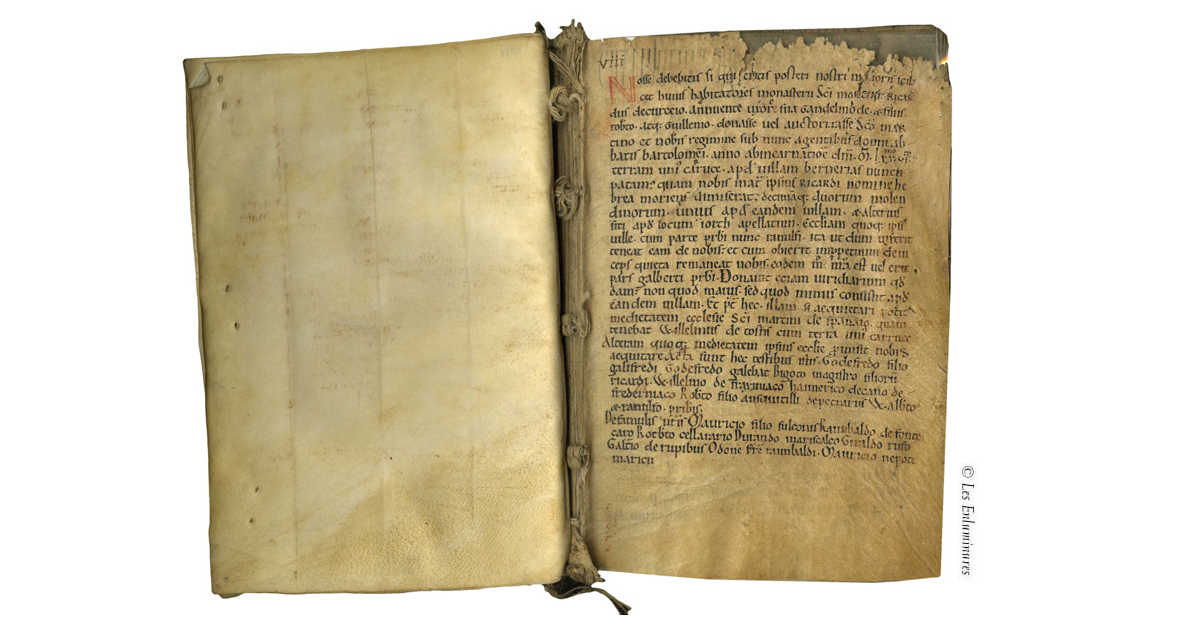 viii
Nosse debebitis si qui estis posteri nostri
huius habitatores monasterii Sci
dus decurceio. annuente uxore sua Gandelmode. & filiis
robto. atq; Guillemo. donasse uel auctorizasse Sco mar
tino et nobis regimine sub nunc agentibus domni ab
batis bartolomei. anno ab incarnatione dni. M.
terram uni carruce. apd uillam bernerias nuncu
patam; quam nobis ipsius Ricardi nomine he
brea moriens dimiserat; decimaq; duorum molen
dinorum. unius apd eandem uillam. & alterius
siti apd locum iorth apellatum. Eccliam quoq; ipsi
uille. cum parte prbi nunc ranulfi. ita ut dum uixerit
teneat eam de nobis; et cum obierit inppetuum dein
ceps quieta remaneat nobis. eodem est uel erit
pars galberti prbi. Donauit eciam uiridiarium qd
dam; non quod maius. sed quod minus consistit apd
eandem uillam. Et hec. illam si acquietari
medietatem ecclesie Sci martini de quam
tenebat Willelmus de tostis cum terra uni carruce
Alteram quoq; medietatem ipsius ecclie pmisit nobis
acquitare Acta sunt hec testibus istis. Godefredo filio
galifredi Godefredo galebat Bigoto magistro filiorum
ricardi. Willelmo de hannerico decano de
Robto filio W. albto
& ranulfo. prbis.
De famulis uris Mauricio filio fulcoius Raimbaldo de fonte
caro Rotbto cellarario Durando mariscalco Giraldo rufo
Galtio de rupibus Odone fre raimbaldi. Mauricio nepote
maricii
© Les Enluminures